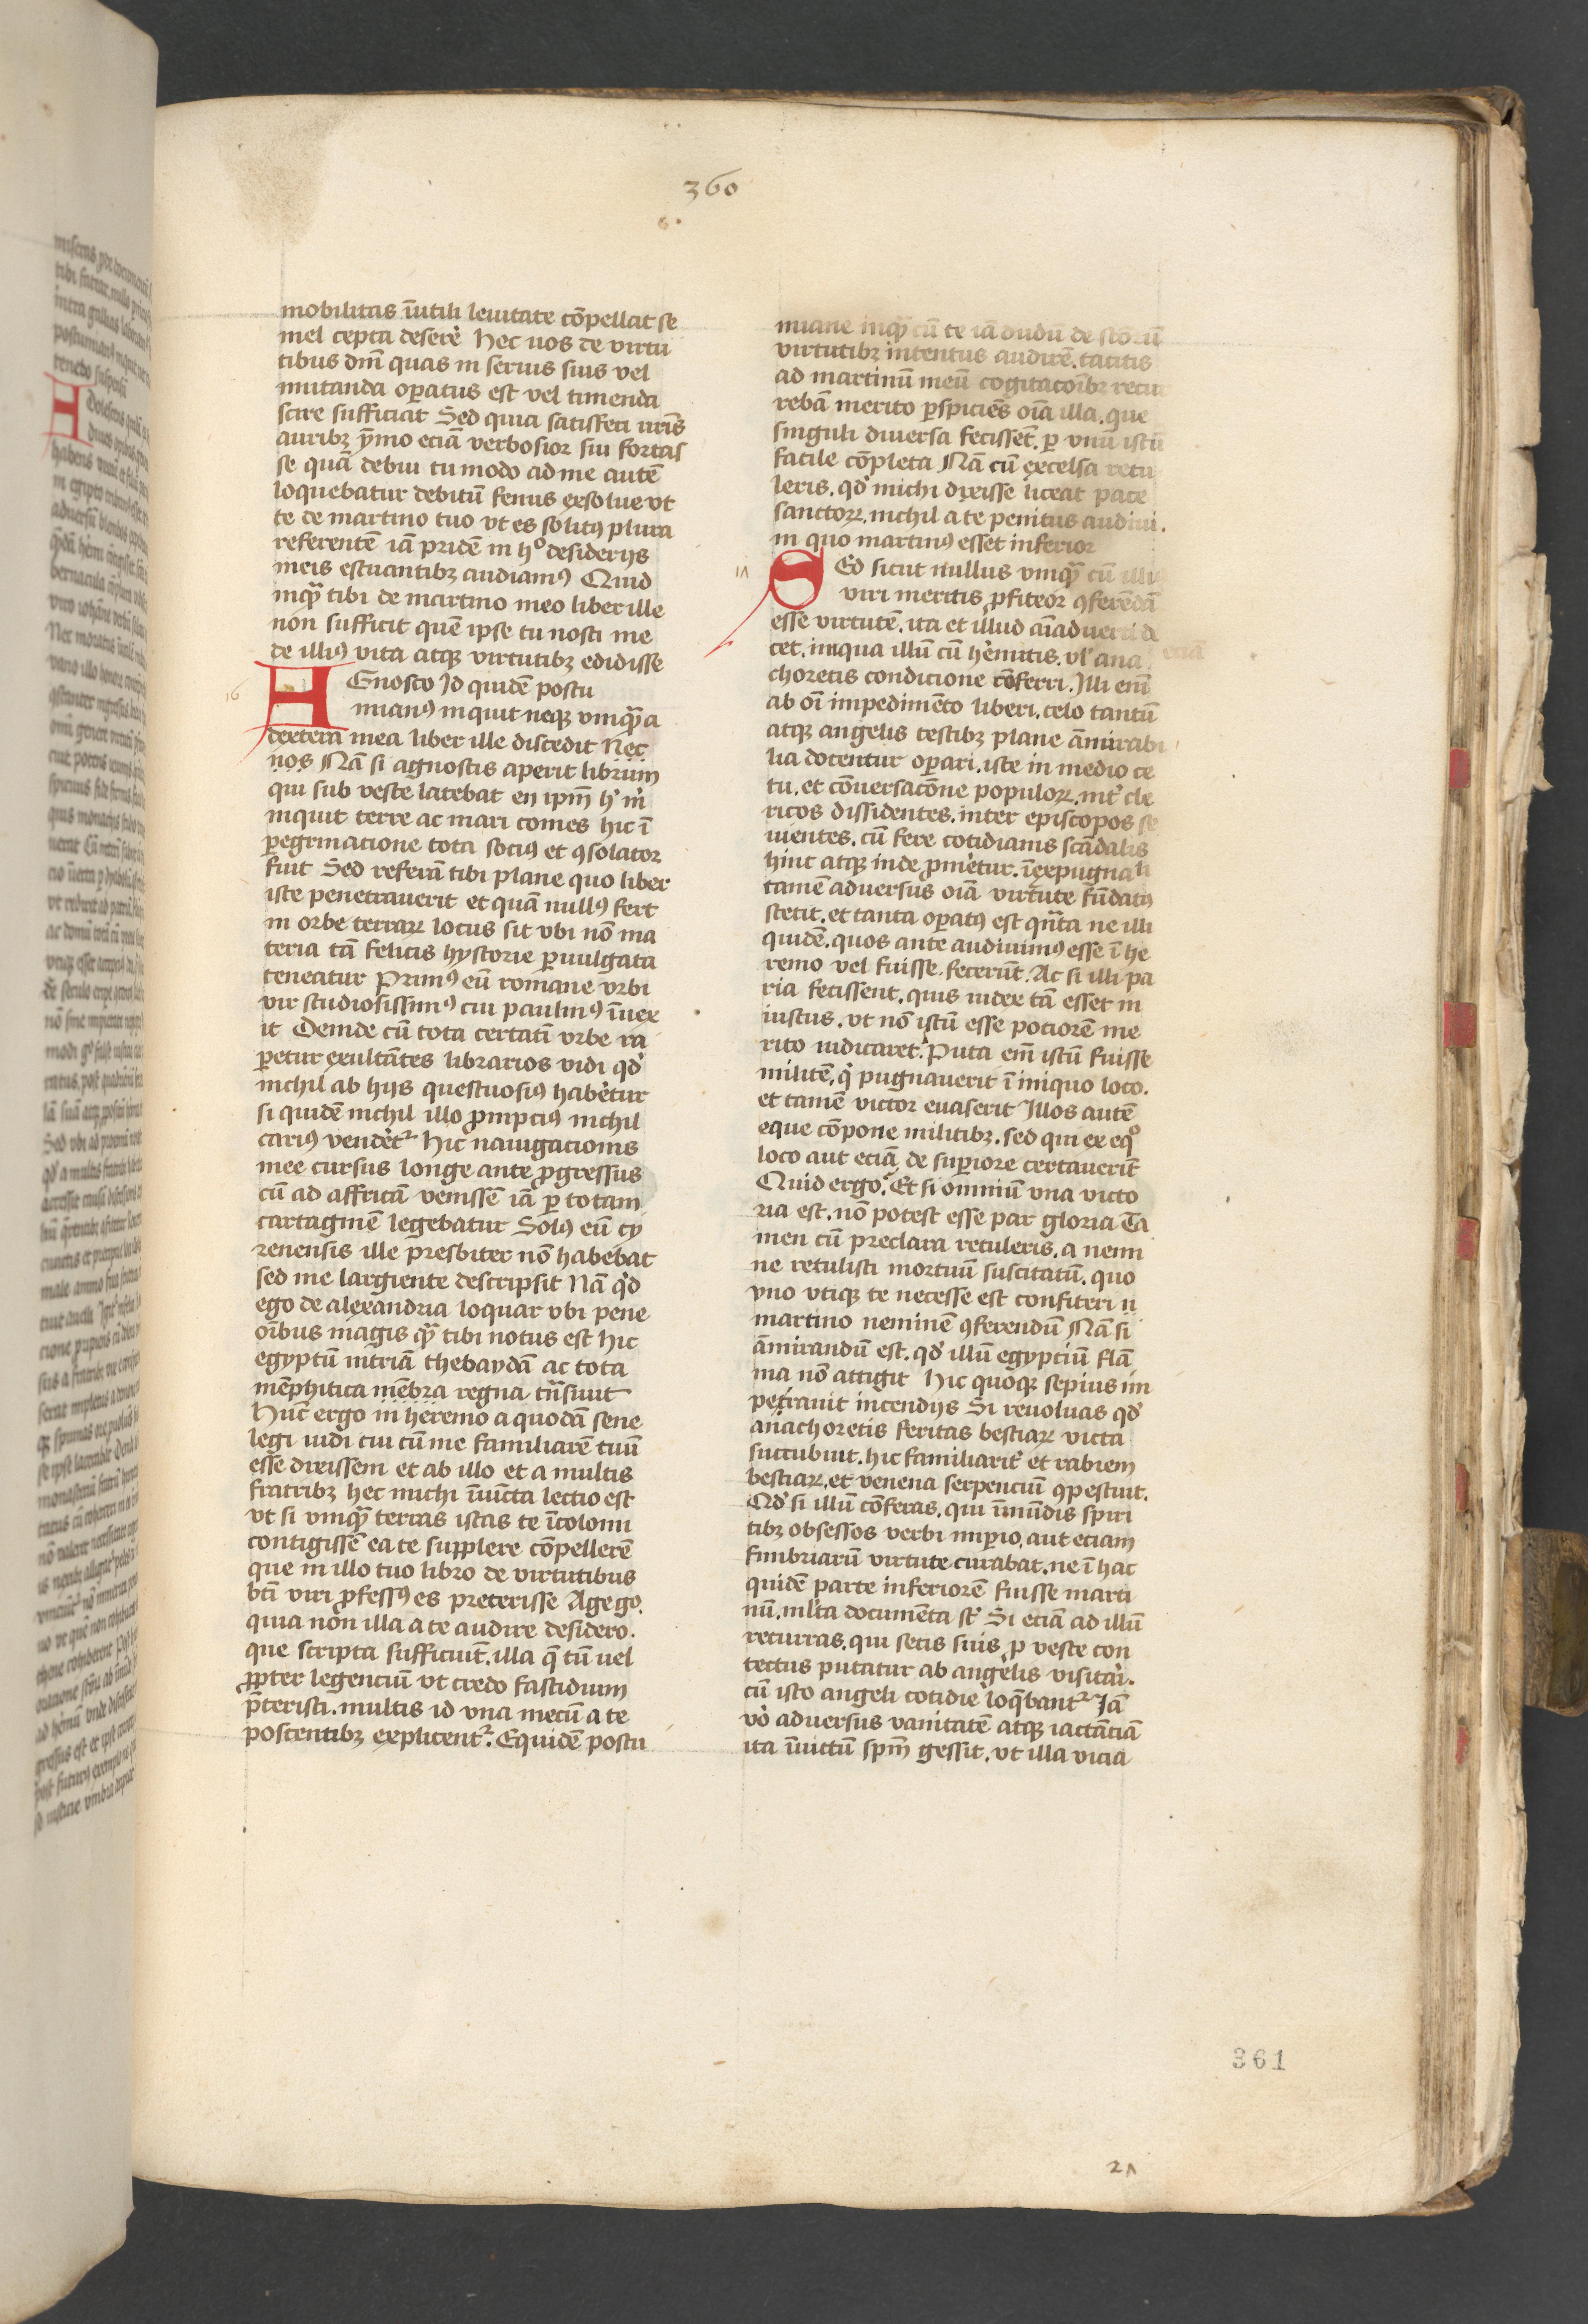 360
mobilitas īutili leuitate cōpellat se
mel cepta deserē Hec uos de virtu
tibus dn̄i quas in seruis suis vel
mutanda oꝑatus est vel timenda
scire sufficiat Sed quia satisfeci ur̄is
auribꝫ ymo eciā verbosior sui fortas
se quā debui tu modo ad me autē
loquebatur debitū fenus exsolue vt
te de martino tuo vt es solitꝰ plura
referentē iā pridē in hᵒ desiderijs
meis estuantibꝫ audiamꝰ Quid
inqͣ tibi de martino meo liber ille
non sufficit quē ipse tu nosti me
de illiꝰ vita atqꝫ virtutibꝫ edidisse
16
AGnosco Id quidē postu
mianꝰ inquit neqꝫ vnqͣ a
dextera mea liber ille discedit Nec
nos Nā si agnostis aperit librum
qui sub veste latebat en ip̄m
inquit terre ac mari comes hic ī
ꝑegrinacione tota sociꝰ et ꝯsolator
fuit Sed referā tibi plane quo liber
iste penetrauerit et quā nullꝰ fert
in orbe terraꝝ locus sit vbi nō ma
teria tā felicis hystorie ꝑuulgata
teneatur Primꝰ eū romane vrbi
vir studiosissimꝰ cui paulinꝰ īuex
it Deinde cū tota certatī vrbe ra
ꝑetur exultātes librarios vidi qđ
nichil ab hijs questuosiꝰ habētur
si quidē nichil illo ꝓmpciꝰ nichil
cariꝰ vendēt᷑ Hic nauigacionis
mee cursus longe ante ꝓgressus
cū ad affricā venissē iā ꝑ totam
cartaginē legebatur Solꝰ eū cy
renensis ille presbiter nō habebat
sed me largiente descripsit Nā qđ
ego de alexandria loquar vbi pene
oībus magis qͣ tibi notus est Hic
egyptū nitriā thebaydā ac tota
mēphitica mēbra regna trāsiuit
Hūc ergo in heremo a quodā sene
legi uidi cui cū me familiarē tuū
esse dixissem et ab illo et a multis
fratribꝫ hec michi īiūcta lectio est
vt si vnqͣ terras istas te īcolomi
contigissē ea te supplere cōpellerē
que in illo tuo libro de virtutibus
bt̄i viri ꝓfessꝰ es preterisse Age go.
quia non illa a te audire desidero.
que scripta sufficiūt. illa q̄ tū uel
ꝓpter legenciū vt credo fastidium
p̄teristi. multis id vna mecū a te
poscentibꝫ explicent᷑. Equidē postu
miane inqͣ cū te iā dudū de sc̄orū
virtutibꝫ intentus audirē. tacitis
ad martinū meū cogitacōibꝫ recur
rebā merito ꝑspiciēs oīa illa. que
singuli diuersa fecissēt. ꝑ vnū istū
facile cōpleta Nā cū excelsa retu
leris. qđ michi dixisse liceat pace
sanctoꝝ. nichil a te penitus audiui.
in quo martinꝰ esset inferior
17
SEd sicut nullus vnqͣ cū illiꝰ
viri meritis ꝓfiteor ꝯferēdā
esse virtutē. ita et illud aīaduerti de
cet. iniqua illū cū hēmitis. vl᷑ ana
eciā
choretis condicione cōferri. Illi enī
ab oī impedimēto liberi. celo tantū
atqꝫ angelis testibꝫ plane āmirabi
lia docentur oꝑari. iste in medio ce
tu. et cōuersacōne populoꝝ. int̄ cle
ricos dissidentes. inter episcopos se
uientes. cū fere cotidianis scādalis
hinc atqꝫ inde p̄mētur. īexpugnabili
tamē aduersus oīa virtute fūdatꝰ
stetit. et tanta oꝑatꝰ est qͣta ne illi
quidē. quos ante audiuimꝰ esse ī he
remo vel fuisse. fecerūt. At si illi pa
ria fecissent. quis iudex tā esset in
iustus. vt nō istū esse potiorē me
rito iudicaret. Puta em̄ istū fuisse
militē. q' pugnauerit ī iniquo loco.
et tamē victor euaserit Illos autē
eque cōpone militibꝫ. sed qui ex eqᵒ
loco aut eciā de suꝑiore certauerīt
Quid ergo. Et si omniū vna victo
ria est. nō potest esse par gloria Ta
men cū preclara retuleris. a nemi
ne retulisti mortuū suscitatū. quo
vno vtiqꝫ te necesse est confiteri
martino neminē ꝯferendū Nā si
āmirandū est. qđ illū egyptiū flā
ma nō attigit Hic quoqꝫ sepius im
petrauit incendijs Si reuoluas qđ
anachoretis feritas bestiaꝝ victa
succubuit. hic familiarit᷑ et rabiem
bestiaꝝ. et venena serpenciū ꝯpescuit.
Qđ si illū cōferas. qui īmūdis spiri
tibꝫ obsessos verbi imꝑio. aut eciam
fimbriarū virtute curabat. ne ī hac
quidē parte inferiorē fuisse marti
nū. ml̄ta documēta st̄ Si eciā ad illū
recurras. qui setis suis ꝓ veste con
tectus putatur ab angelis visitari.
cū isto angeli cotidie loq̄bant᷑ Iā
vō aduersus vanitatē atqꝫ iactāciā
ita īuictū spm̄ gessit. vt illa vicia
361
21